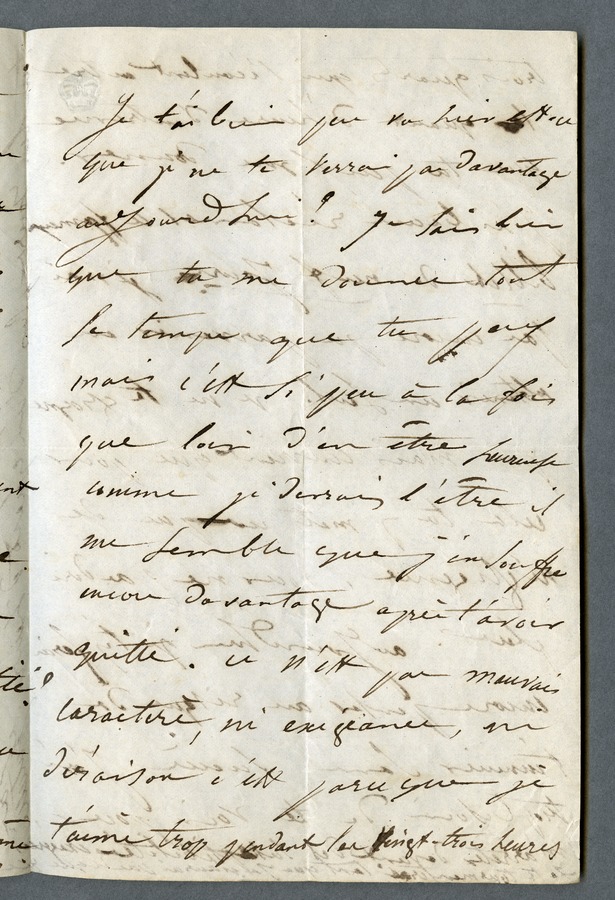 Je t'ai bien peu vu hier est-ce
que je ne te verrai pas davantage
aujourd'hui? Je sais bien
que tu me donnes tout
le temps que tu peux
mais c'est si peu à la fois
que loin d'en être heureuse
comme je devrais l'être il
me semble que j'en souffre
encore davantage après t'avoir
quitté. ce n'est pas mauvais
caractère, ni exigeance, ni
déraison c'est parce que je
t'aime trop pendant les vingt-trois heures